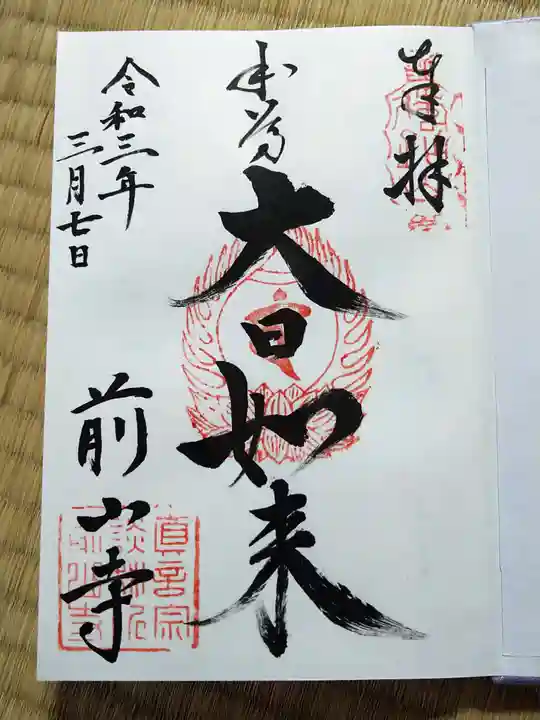 奉拝
本尊
大日如来
令和三年
三月七日
前山寺
真言宗